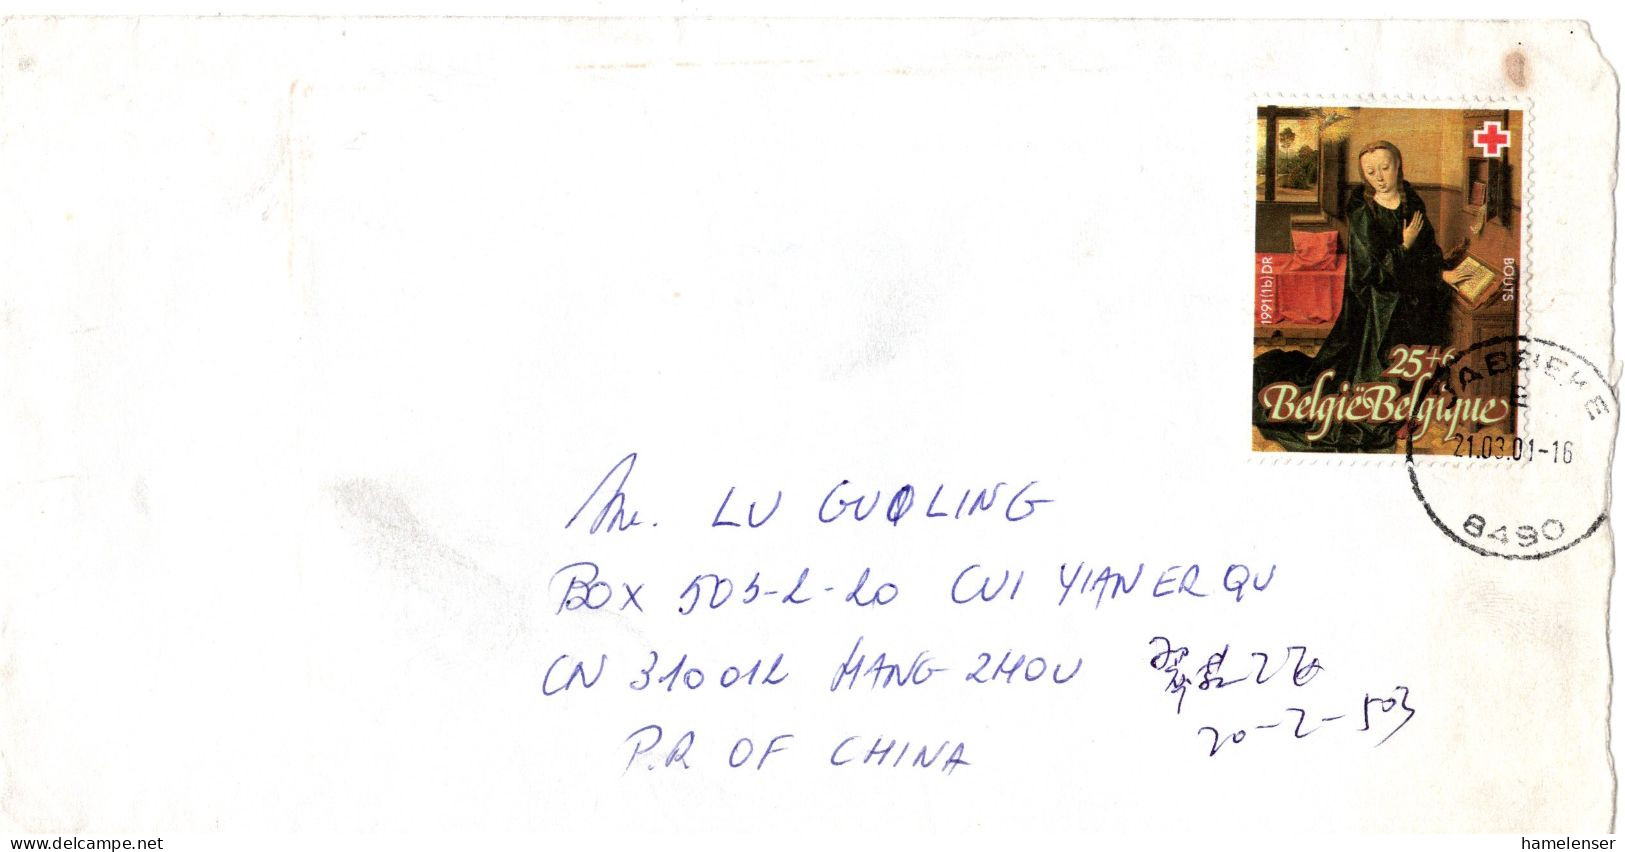 1991(1b)DR
BOUTS
25+6
België Belgique
JABBEKE
21.03.01-16
8490
Mr. LU GUOLING
BOX 503-2-20 CUI YIAN ER QU
CN 310012 HANG ZHOU
翠苑2区
20-2-503
P.R OF CHINA
www.delcampe.net
hamelenser